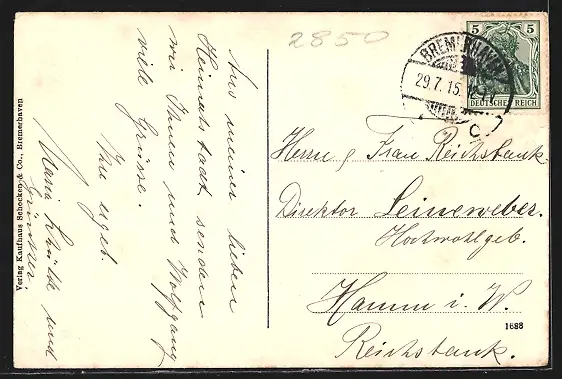 2850
5 5
BREMERHAVEN
29.7.15.
DEUTSCHES REICH
C.
Herrn & Frau Reichsbank.
Direktor Leineweber.
Hochwohlgeb.
Hamm i. W.
Reichsbank.
1688
Aus meiner lieben
Heimatstadt senden
wir Ihnen und Wolfgang
viele Grüsse.
Ihre ergeb.
Maria Schulte und
Verlag Kaufhaus Schocken & Co., Bremerhaven